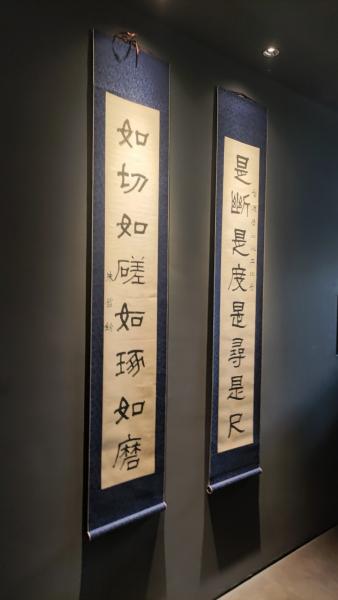 是斷是度是尋是尺
如切如磋如琢如磨